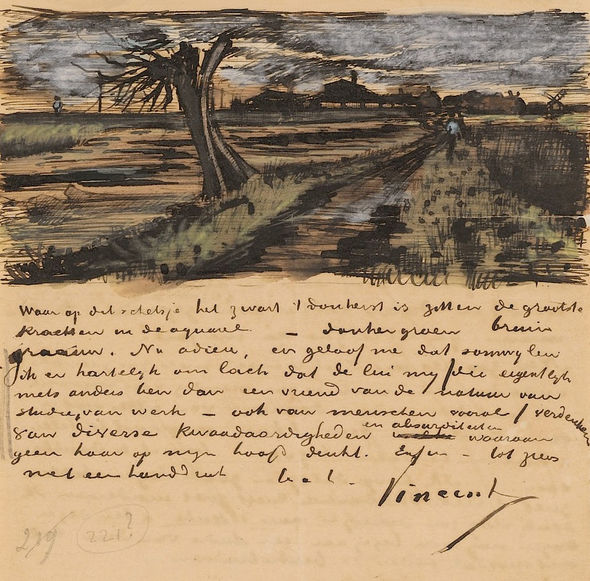 Waar op dit schetsje het zwart 't donkerst is zitten de grootste
krachten in de aquarel – donkergroen bruin
graauw. Nu adieu, en geloof me dat somwijlen
ik er hartelijk om lach dat de lui mij /die eigentlijk
niets anders ben dan een vriend van de natuur van
studie, van werk – ook van menschen vooral/ verdenken
van diverse kwaadaardigheden en absurditeiten waaraan
geen haar op mijn hoofd denkt. Enfin – tot ziens
met een handdruk t. à t. Vincent
219 221?